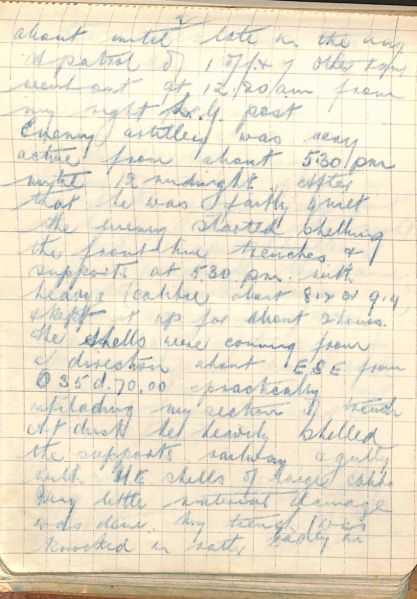 2
about until late in the day
A patrol of 1 offr & 7 other
went out at 12.30 am from
my right L.G. post
Enemy artillery was very
active from about 5.30 pm
until 12 midnight. After
that he was fairly quiet
The enemy started shelling
the front line trenches &
supports at 5.30 pm. with
heavy calibre about 8.2 or 9.4
& kept it up for about 2 hours.
The shells were coming from
a direction about ESE from
O 35 d.70.00 practically
enfilading my section of trench
At dusk he heavily shelled
the supports railway & gully
with HE shells of large calibre
Very little material damage
was done. My trench was
knocked in rather badly in